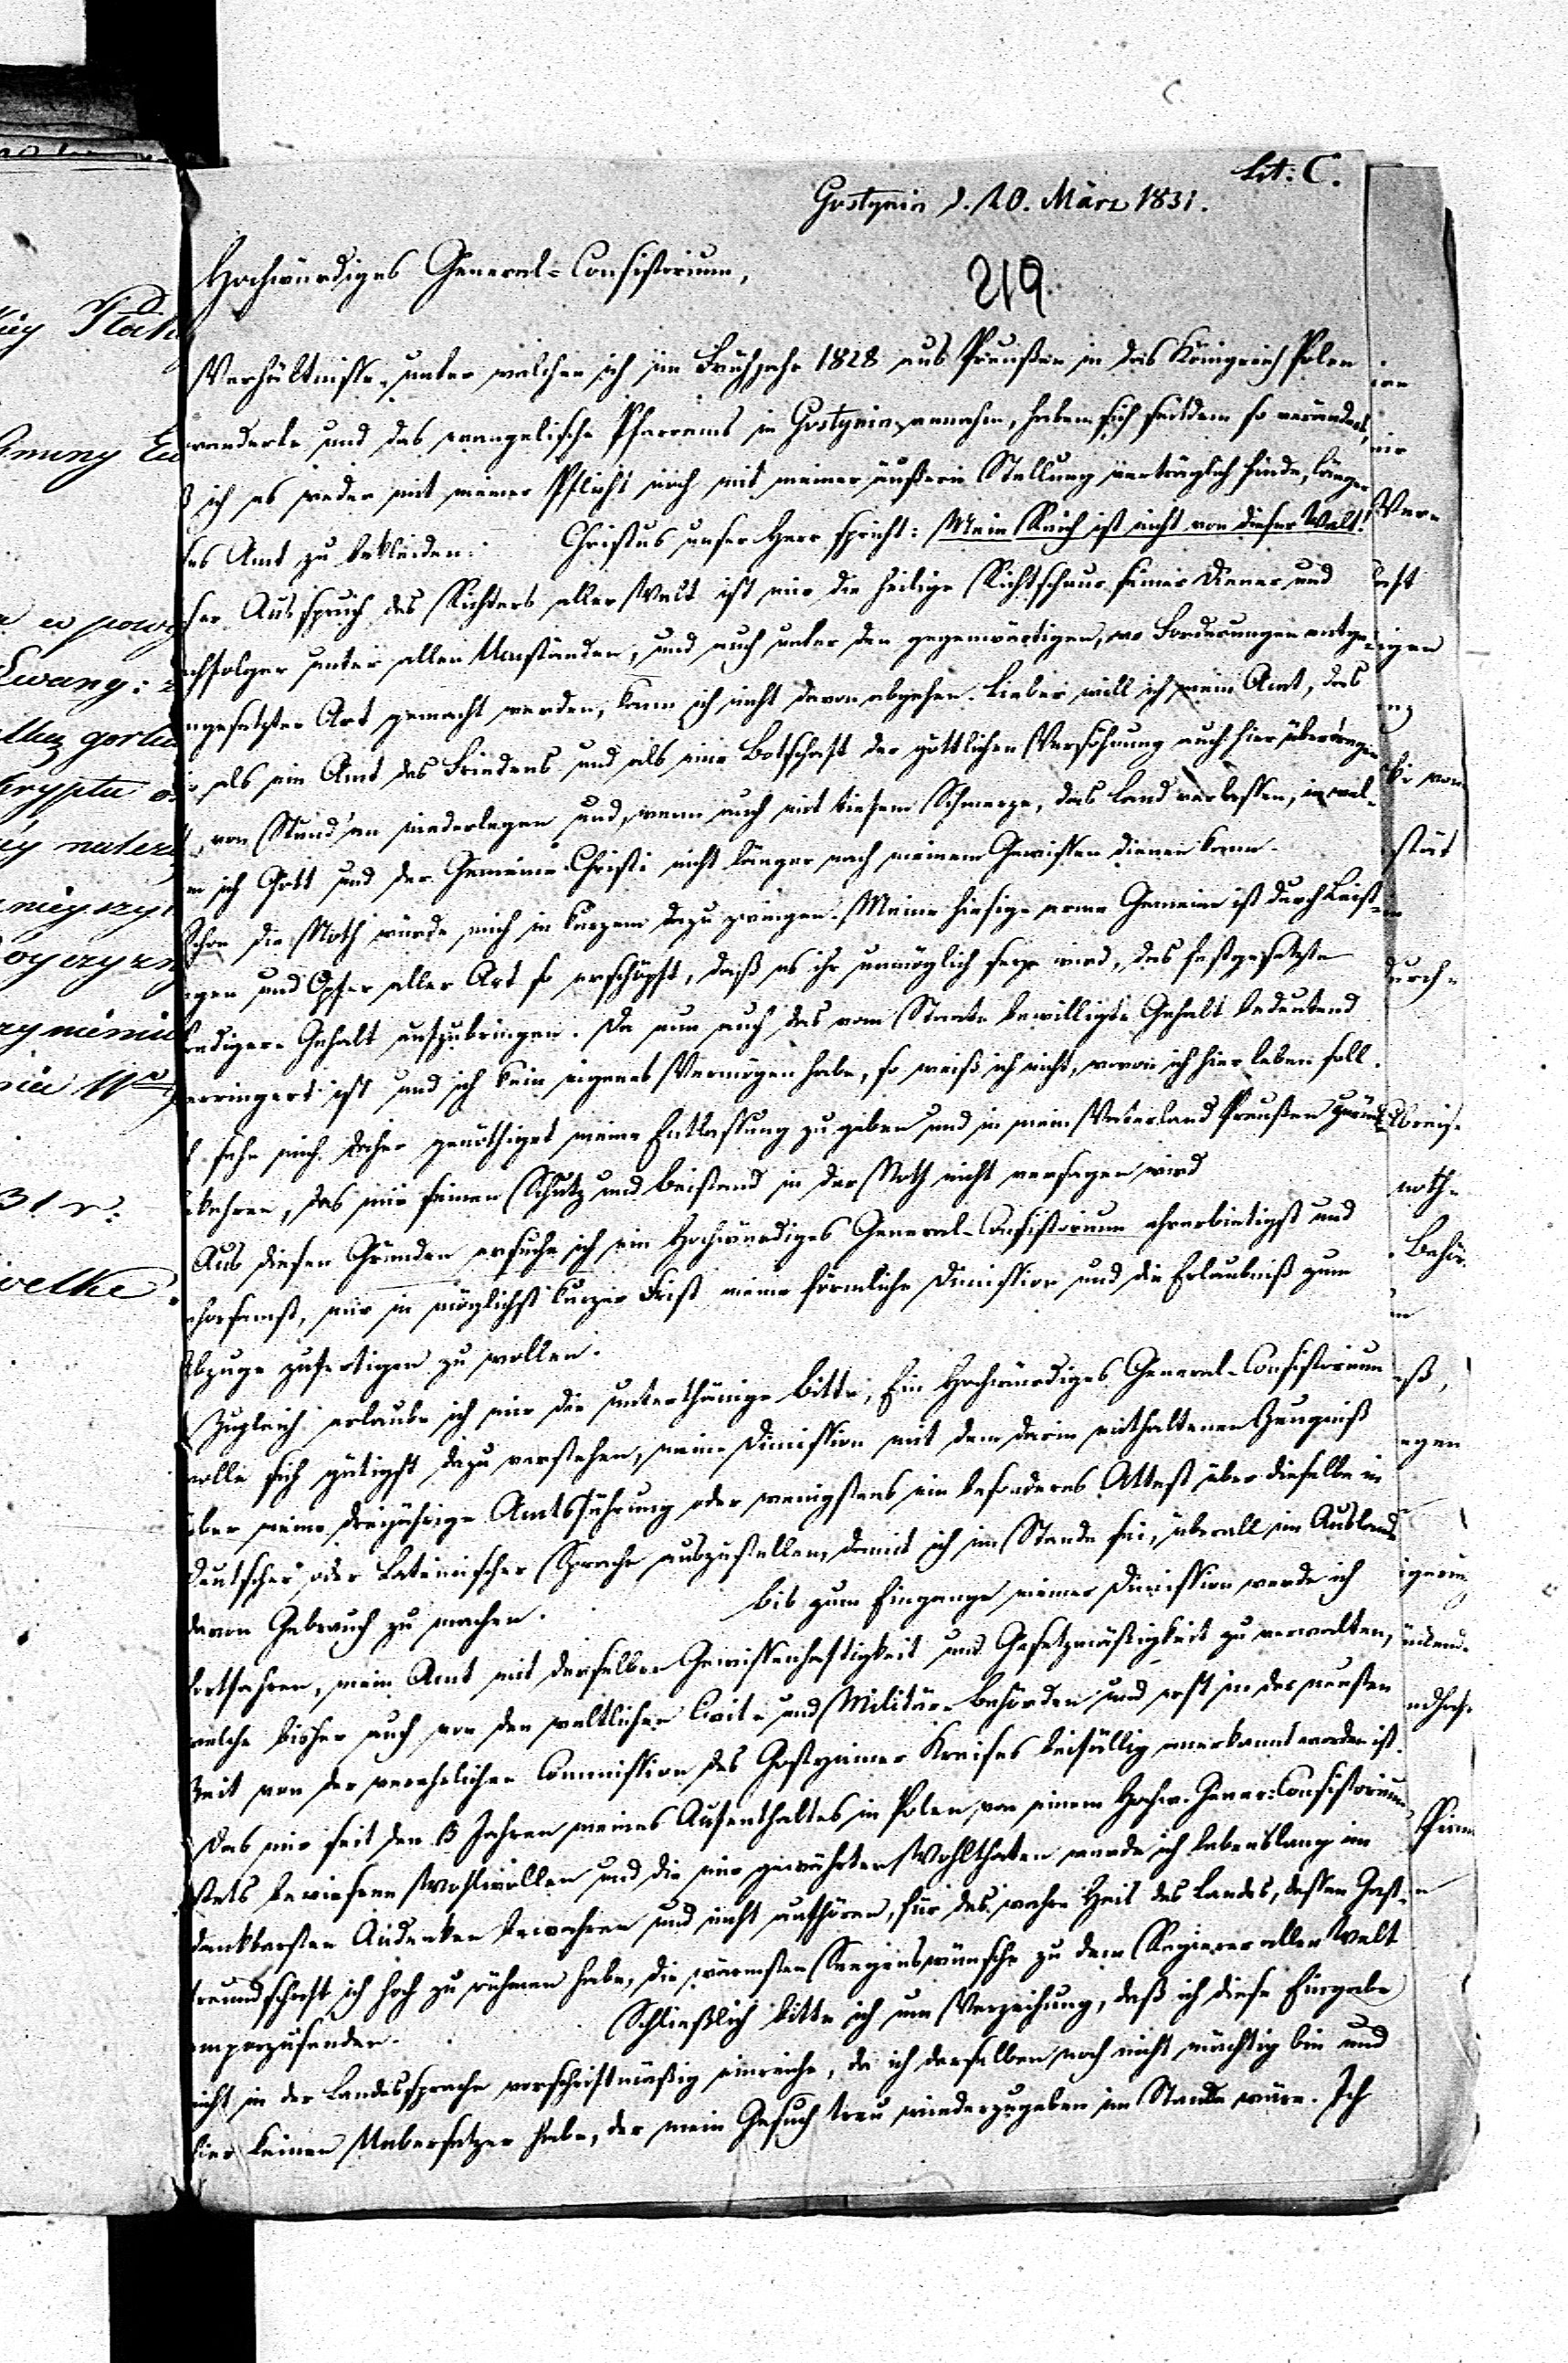 Lit: C.
Gostynin d. 20. März 1831.
Hochwürdiges General-Consistorium,
219
Verhältnisse, unter welchen ich im Frühjahr 1828 aus Preußen in das Königreich Polen
wanderte und das evangelische Pfarramt in Gostynin annahm, haben sich seitdem so verändert,
ß ich es weder mit meiner Pflicht noch mit meiner äußern Stellung verträglich finde, länger
ses Amt zu bekleiden. Christus unser Herr spricht: Mein Reich ist nicht von dieser Welt!
ser Ausspruch des Richters aller Welt ist mir die heilige Richtschnur seiner Diener und
chfolger unter allen Umständen, und auch unter den gegenwärtigen, wo Forderungen entge-
ngesetzter Art gemacht werden, kann ich nicht davon abgehen. Lieber will ich mein Amt, das
als ein Amt des Friedens und als eine Botschaft der göttlichen Versöhnung auch hier übertragen
, von Stund' an niederlegen und, wenn auch mit tiefem Schmerze, das Land verlassen, in wel-
m ich Gott und der Gemeine Christi nicht länger nach meinem Gewissen dienen kann.
Schon die Noth würde mich in kurzem dazu zwingen. Meine hiesige arme Gemeine ist durch Leist-
ngen und Opfer aller Art so erschöpft, daß es ihr unmöglich seyn wird, das festgesetzte
rediger-Gehalt aufzubringen. Da nun auch das vom Staate bewilligte Gehalt bedeutend
erringert ist und ich kein eigenes Vermögen habe, so weiß ich nicht, wovon ich hier leben soll.
h sehe mich daher genöthiget meine Entlassung zu geben und in mein Vaterland Preußen zurück
kehren, das mir seinen Schutz und Beistand in der Noth nicht versagen wird
Aus diesen Gründen ersuche ich ein Hochwürdiges General-Consistorium ehrerbietigst und
horsamst, mir in möglichst kurzer Frist meine förmliche Dimission und die Erlaubniß zum
Abzuge zufertigen zu wollen.
Zugleich erlaube ich mir die unterthänige Bitte, Ein Hochwürdiges General-Consistorium
wolle sich gütigst dazu verstehen, meine Dimission mit dem darin enthaltenen Zeugniß
über meine dreijährige Amtsführung oder wenigstens ein besonderes Attest über dieselbe in
Deutscher oder Lateinischer Sprache auszustellen, damit ich im Stande sei, überall im Auslande
davon Gebrauch zu machen. Bis zum Eingange meiner Dimission werde ich
fortfahren, mein Amt mit derselben Gewissenhaftigkeit und Gesetzmäßigkeit zu verwalten,
welche bisher auch von den weltlichen Civil- und Militär-Behörden und erst in der neusten
Zeit von der verehrlichen Commission des Gostyniner Kreises beifällig anerkannt worden ist.
Das mir seit den 3 Jahren meines Aufenthaltes in Polen von einem Hochw. Gener: Consistorium
stets bewiesene Wohlwollen und die mir gewährten Wohlthaten werde ich lebenslang im
dankbarsten Andenken bewahren und nicht aufhören, für das wahre Heil des Landes, dessen Gast-
freundschaft ich hoch zu rühmen habe, die wärmsten Segenswünsche zu dem Regierer aller Welt
emporzusenden. Schließlich bitte ich um Verzeihung, daß ich diese Eingabe
nicht in der Landessprache vorschriftmäßig einreiche, da ich derselben noch nicht mächtig bin und
hier keinen Uebersetzer habe, der mein Gesuch treu wiederzugeben im Stande wäre. Ich